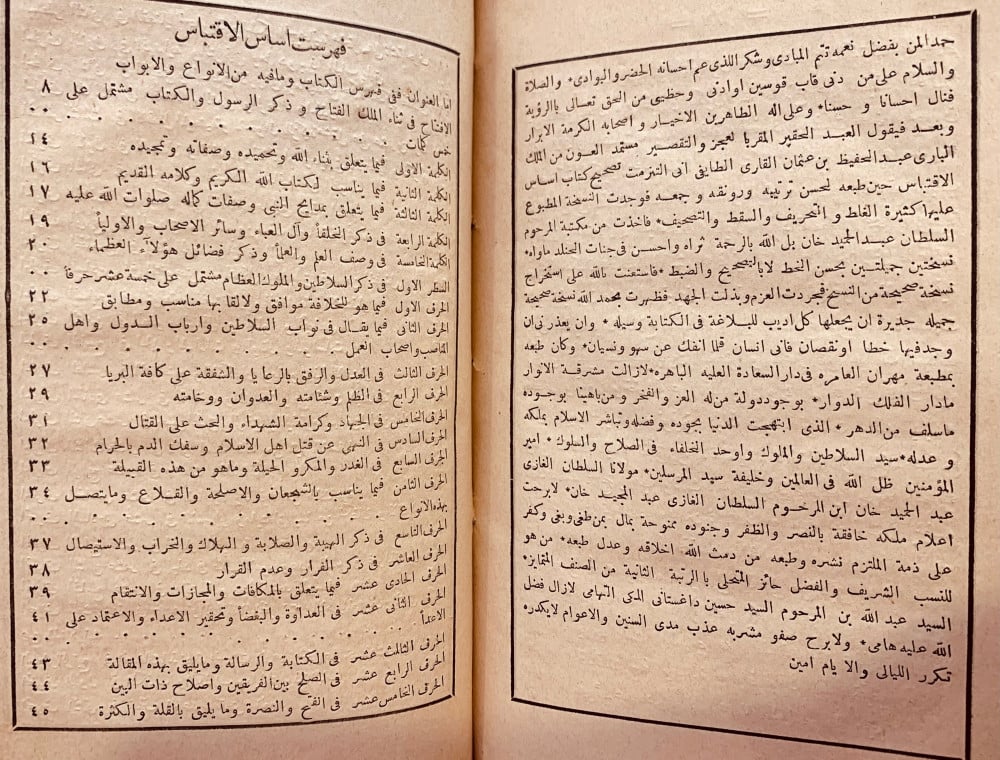 حمدالمن بفضل نعمه تتم المبادی وشکر اللذی عم احسانه الحضر والبوادی* والصلاة
والسلام علی من دنی قاب قوسین اوادنی وحظیی من الحق تعالی بالرؤیة
فنال احسانا و حسنا* وعلی اله الطاهرین الاخیار و اصحابه الکرمة الابرار
وبعد فیقول العبد الحقیر المقر با لعجز والتقصیر مستمد العون من الملک
الباری عبد الحفیظ بن عثمان القاری الطایفی انی التزمت تصحیح کتاب اساس
الاقتباس حین طبعه لحسن ترتیبه ورونقه و جمعه فوجدت النسخة المطبوع
علیها کثیرة الغلط و التحریف والسقط والتصحیف* فاخذت من مکتبة المرحوم
السلطان عبد الحمید خان بل الله بالرحمة ثراه واحسن فی جنات الخلد ماواه*
نسختین جمیلتین بحسن الخط لابالتصحیح والضبط *فاستعنت بالله علی استخراج
نسخة صحیحة من النسخ فجردت العزم وبذلت الجهد فظهرت بحمد الله نسخة صحیحة
جمیله جدیرة ان یجعلها کل ادیب للبلاغة فی الکتابة وسیله* وان یعذرنی ان
وجد فیها خطا اونقصان فانی انسان قلما انفک عن سهو ونسیان* وکان طبعه
بمطبعة مهران العامره فی دار السعادة العلیه الباهره* لازالت مشرقة الانوار
مادار الفلک الدوار* بوجود دولة من له العز والفخر ومن باهینا بوجوده
ماسلف من الدهر* الذی ابتهجت الدنیا بجوده وفضله وتباشر الاسلام بملکه
و عدله* سید السلاطین والملوک واوحد الخلفاء فی الصلاح والسلوک* امیر
المؤمنین ظل الله فی العالمین وخلیفة سید المرسلین* مولانا السلطان الغازی
عبد الحمید خان ابن المرحوم السلطان الغازی عبد المجید خان* لابرحت
اعلام ملکه خافقة بالنصر والظفر وجنوده ممنوحة بمال بمن طغی وبغی وکفر
علی ذمة الملتزم نشره وطبعه من دمث الله اخلاقه وعدل طبعه* من هو
للنسب الشریف والفضل حائز المتحلی با الرتبة الثانیة من الصنف المتمایز*
السید عبد الله بن المرحوم السید حسین داغستانی المکی التهامی لازال فضل
الله علیه هامی* ولابرح صفو مشربه عذب مدی السنین والاعوام لایکدره
تکرر اللیالی والا یام امین
فهرست اساس الاقتباس
اما العنوان ففی فهرس الکتاب ومافیه من الانواع والابواب
الافتاح فی ثناء الملک الفتاح و ذکر الرسول والکتاب مشتمل علی ٨
خمس کلمات . . . . . . . . . . ٠٠
الکلمة الاولی فیما یتعلق بثناء الله وتحمیده وصفاته وتمجیده ١٤
الکلمة الثانیة فیما یناسب لکتاب الله الکریم وکلامه القدیم ١٦
الکلمة الثالثة فیما یتعلق بمدایح النبی وصفات کماله صلوات الله علیه ١٧
الکلمة الرابعة فی ذکر الخلفأ وآل العباء وسائر الاصحاب والاولیأ ١٩
الکلمة الخامسة فی وصف العلم والعلمأ وذکر فضائل هؤلاء العظماء ٢٠
السطر الاول فی ذکر السلاطین والملوک العظام مشتمل علی خمسة عشر حرفا ٠٠
الحرف الاول فیما هو للخلافة موافق ولالقا بها مناسب ومطابق ٢٢
الحرف الثانی فیما یقال فی نواب السلاطین وارباب الدول واهل ٢٥
المناصب واصحاب العمل . . . . . . . . ٠٠
الحرف الثالث فی العدل والرفق بالرعا یا والشفقة علی کافة البریا ٢٧
الحرف الرابع فی الظلم وشئامته والعدوان ووخامته ٢٩
الحرف الخامس فی الجهاد وکرامة الشهداء والبحث علی القتال ٣١
الحرف السادس فی النهی عن قتل اهل الاسلام وسفک الدم بالحرام ٣٢
الحرف السابع فی الغدر والمکر و الحیلة وماهو من هذه القبیلة ٣٣
الحرف الثامن فیما یناسب بالشجعان والاصلحة والقلاع ومایتصل ٣٤
بهذه الانواع . . . . . . . . . ٠٠
الحرف التاسع فی ذکر الهیبة والصلابة و الهلاک والخراب والاستیصال ٣٧
الحرف العاشر فی ذکر الفرار وعدم القرار ٣٨
الحرف الحادی عشر فیما یتعلق بالمکافات والمجازات والانتقام ٣٩
الحرف الثانی عشر فی العداوة والبغضأ وتحقیر الاعداء والاعتماد علی ٤١
الاعدأ . . . . . . . . . . ٠٠
الحرف الثالث عشر فی الکتابة والرسالة ومایلیق بهذه المقالة ٤٣
الحرف الرابع عشر فی الصلح بین الفریقین واصلاح ذات البین ٤٤
الحرف الخامس عشر فی الفتح والنصرة وما یلیق بالقلة والکثرة ٤٥